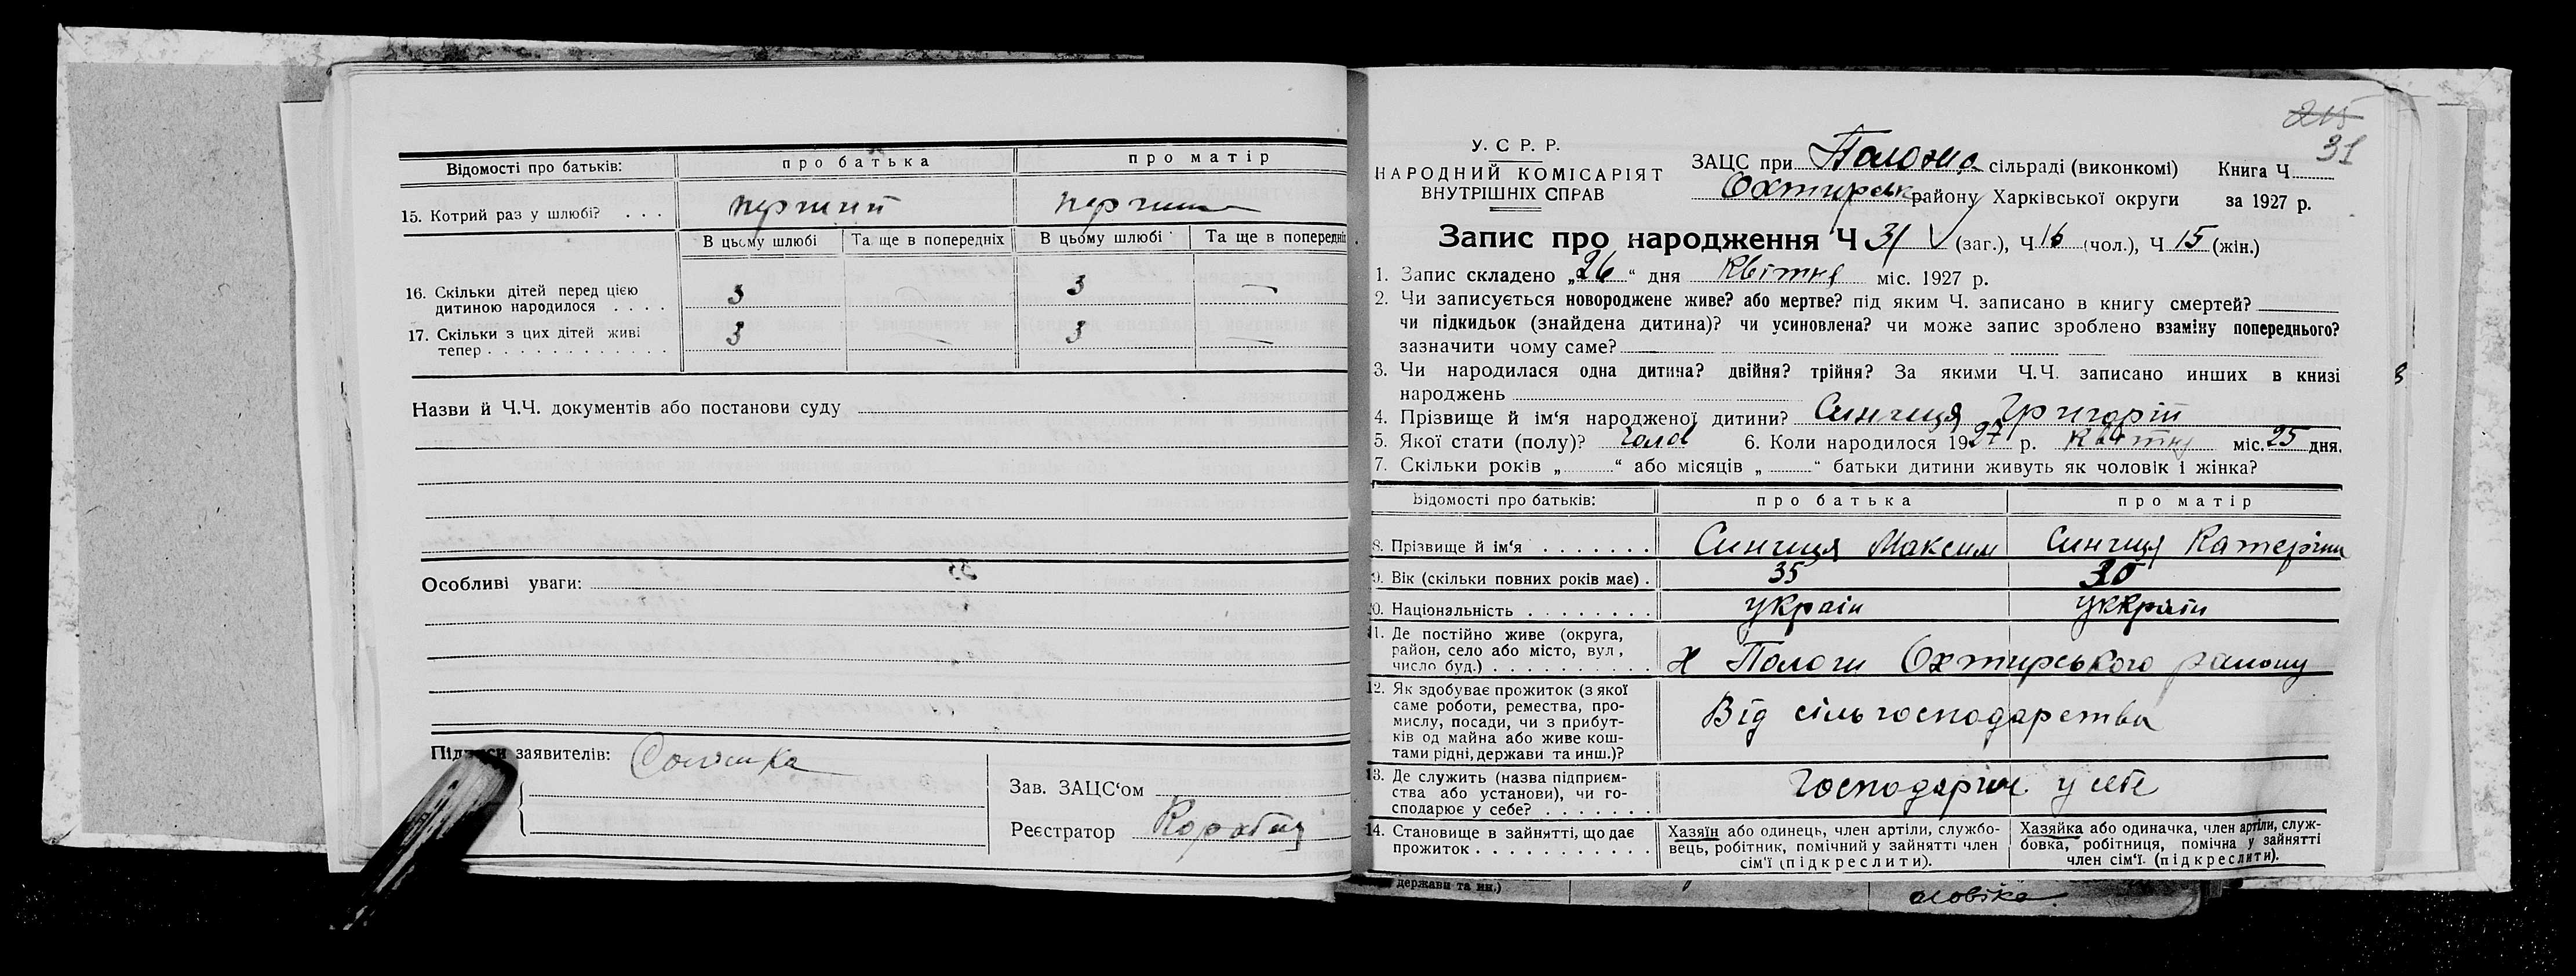 Відомості про батьків: про батька про матір
15. Котрий раз у шлюбі? . . . перший перший
В цьому шлюбі Та ще в попередніх В цьому шлюбі Та ще в попередніх
16. Скільки дітей перед цією
дитиною народилося . . . . 3 — 3 —
17. Скільки з цих дітей живі
тепер . . . . . . . . . . . . . 3 — 3 —
Назви й Ч.Ч. документів або постанови суду
Особливі уваги:
Підписи заявителів:
Зав. ЗАЦС‘ом
Реєстратор
215
31
У. С Р. Р.
НАРОДНИЙ КОМІСАРІЯТ
ВНУТРІШНІХ СПРАВ
ЗАЦС при сільраді (виконкомі) Книга Ч.
Охтирськ району Харківської округи за 1927 р.
Запис про народження Ч 31 (заг.), Ч 16 (чол.), Ч 15 (жін.)
1. Запис складено „26“ дня квітня міс. 1927 р.
2. Чи записується новороджене живе? або мертве? під яким Ч. записано в книгу смертей?
чи підкидьок (знайдена дитина)? чи усиновлена? чи може запис зроблено взаміну попереднього?
зазначити чому саме?
3. Чи народилася одна дитина? двійня? трійня? За якими Ч.Ч. записано инших в книзі
народжень
4. Прізвище й ім‘я народженої дитини? Синиця Григорій
5. Якої стати (полу)? чолов 6. Коли народилося 1927 р. квітня міс. 25 дня.
7. Скільки років „ “ або місяців „ “ батьки дитини живуть як чоловік і жінка?
Відомості про батьків: про батька про матір
8. Прізвище й ім‘я . . . . . . . Синиця Максим Синиця Катерина
9. Вік (скільки повних років має) . 35 30
10. Національність . . . . . . . . україн україн
11. Де постійно живе (округа,
район, село або місто, вул,
число буд.) . . . . . . . . . . х Пологи Охтирського району
12. Як здобуває прожиток (з якої
саме роботи, ремества, про-
мислу, посади, чи з прибут-
ків од майна або живе кош-
тами рідні, держави та инш.)?
Від сільгосподарства
13. Де служить (назва підприєм-
ства або установи), чи го-
сподарює у себе? . . . . . . .
у себе
14. Становище в зайнятті, що дає
прожиток . . . . . . . . . . .
Хазяїн або одинець, член артіли, службо-
вець, робітник, помічний у зайнятті член
сім'ї (підкреслити).
Хазяйка або одиначка, член артіли, служ-
бовка, робітниця, помічна у зайнятті
член сім‘ї. (підкреслити).
держави та ин.)